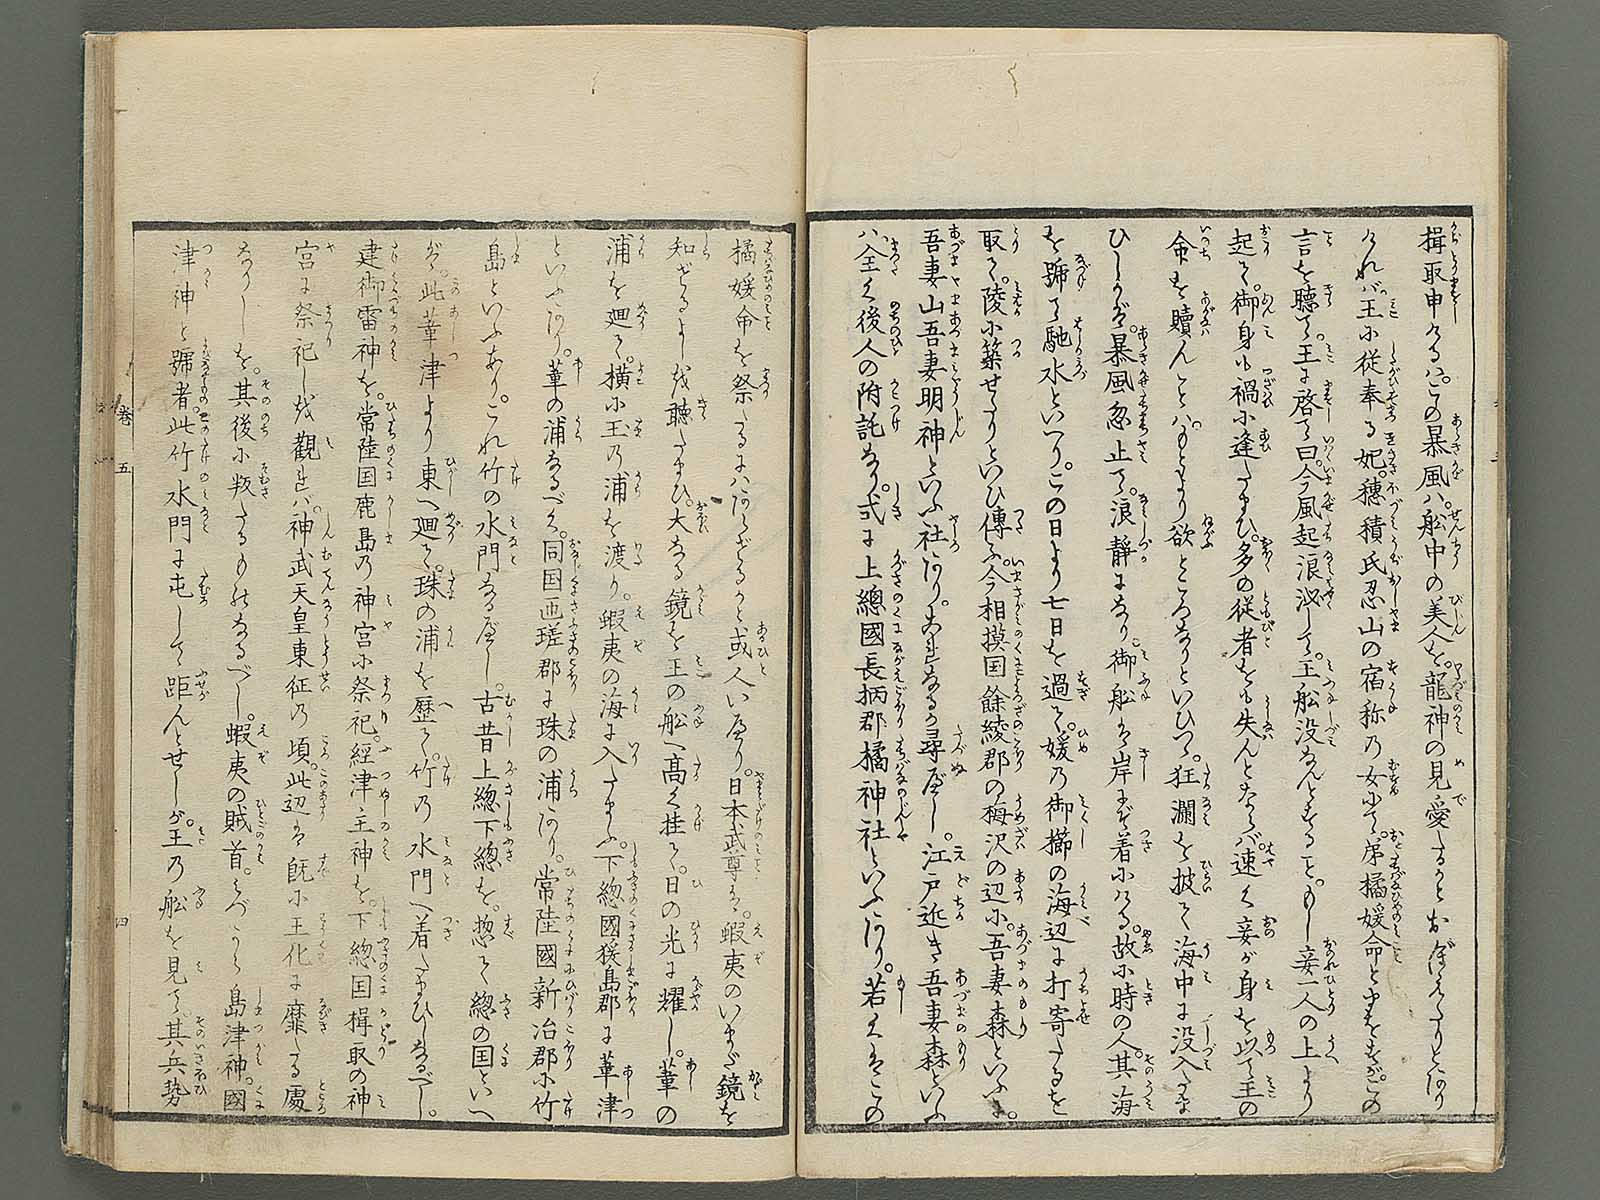 楫取申けるは。この暴風は。船中の美人を。龍神の見愛たるかとおぼえたりとあり
ければ。王に従奉る妃。穂積氏忍山の宿称の女にて。弟橘媛命とまをすが。この
言を聴て。王に啓て曰。今風起浪泌して。王船没なんとす。もし妾一人の上より
起て。御身に禍に逢たまひ。多の従者をも失んとならば。速く妾が身を以て王の
命を贖んとは。もとより欲ところなりといひつゝ。狂瀾を披て海中に没入たま
ひしかば。暴風忽止て。浪静になり。御船は岸まで着にける。故に時の人。其海
を号て馳水といへり。この日より七日を過て。媛の御櫛の海辺に打寄たるを
取て。陵に築せたりといひ傳ふ。今相摸国餘綾郡の梅沢の辺に。吾妻森といふ。
吾妻山吾妻明神といふ社あり。これなるか尋べし。江戸近き吾妻森といふ
は。全く後人の附託なり。式に上總國長柄郡橘神社といふあり。若くはこの
橘媛命を祭るにはあらざるかと。或人いへり。日本武尊は。蝦夷のいまだ鏡を
知ざるよしを聴たまひ。大なる鏡を王の船へ高く挂て。日の光に耀し。葦の
浦を廻て。横に玉の浦を渡り。蝦夷の海に入たまふ。下總國猨島郡に葦津
といふあり。葦の浦なるべく。同国匝瑳郡に珠の浦あり。常陸國新治郡に竹
島といふあり。これ竹の水門なるべし。古昔上總下總を。惣て總の国といへ
ば。此葦津より東へ廻て。珠の浦を歴て。竹の水門へ着たまひしなるべし。
建御雷神を。常陸国鹿島の神宮に祭祀。經津主神を。下總国楫取の神
宮に祭祀しを観れば。神武天皇東征の頃。此辺は既に王化に靡たる處
なりしを。其後に叛たるものなるべし。蝦夷の賊首。島津神。國
津神と号者。此竹水門に屯して距んとせしが。王の船を見て。其兵勢
巻五
四